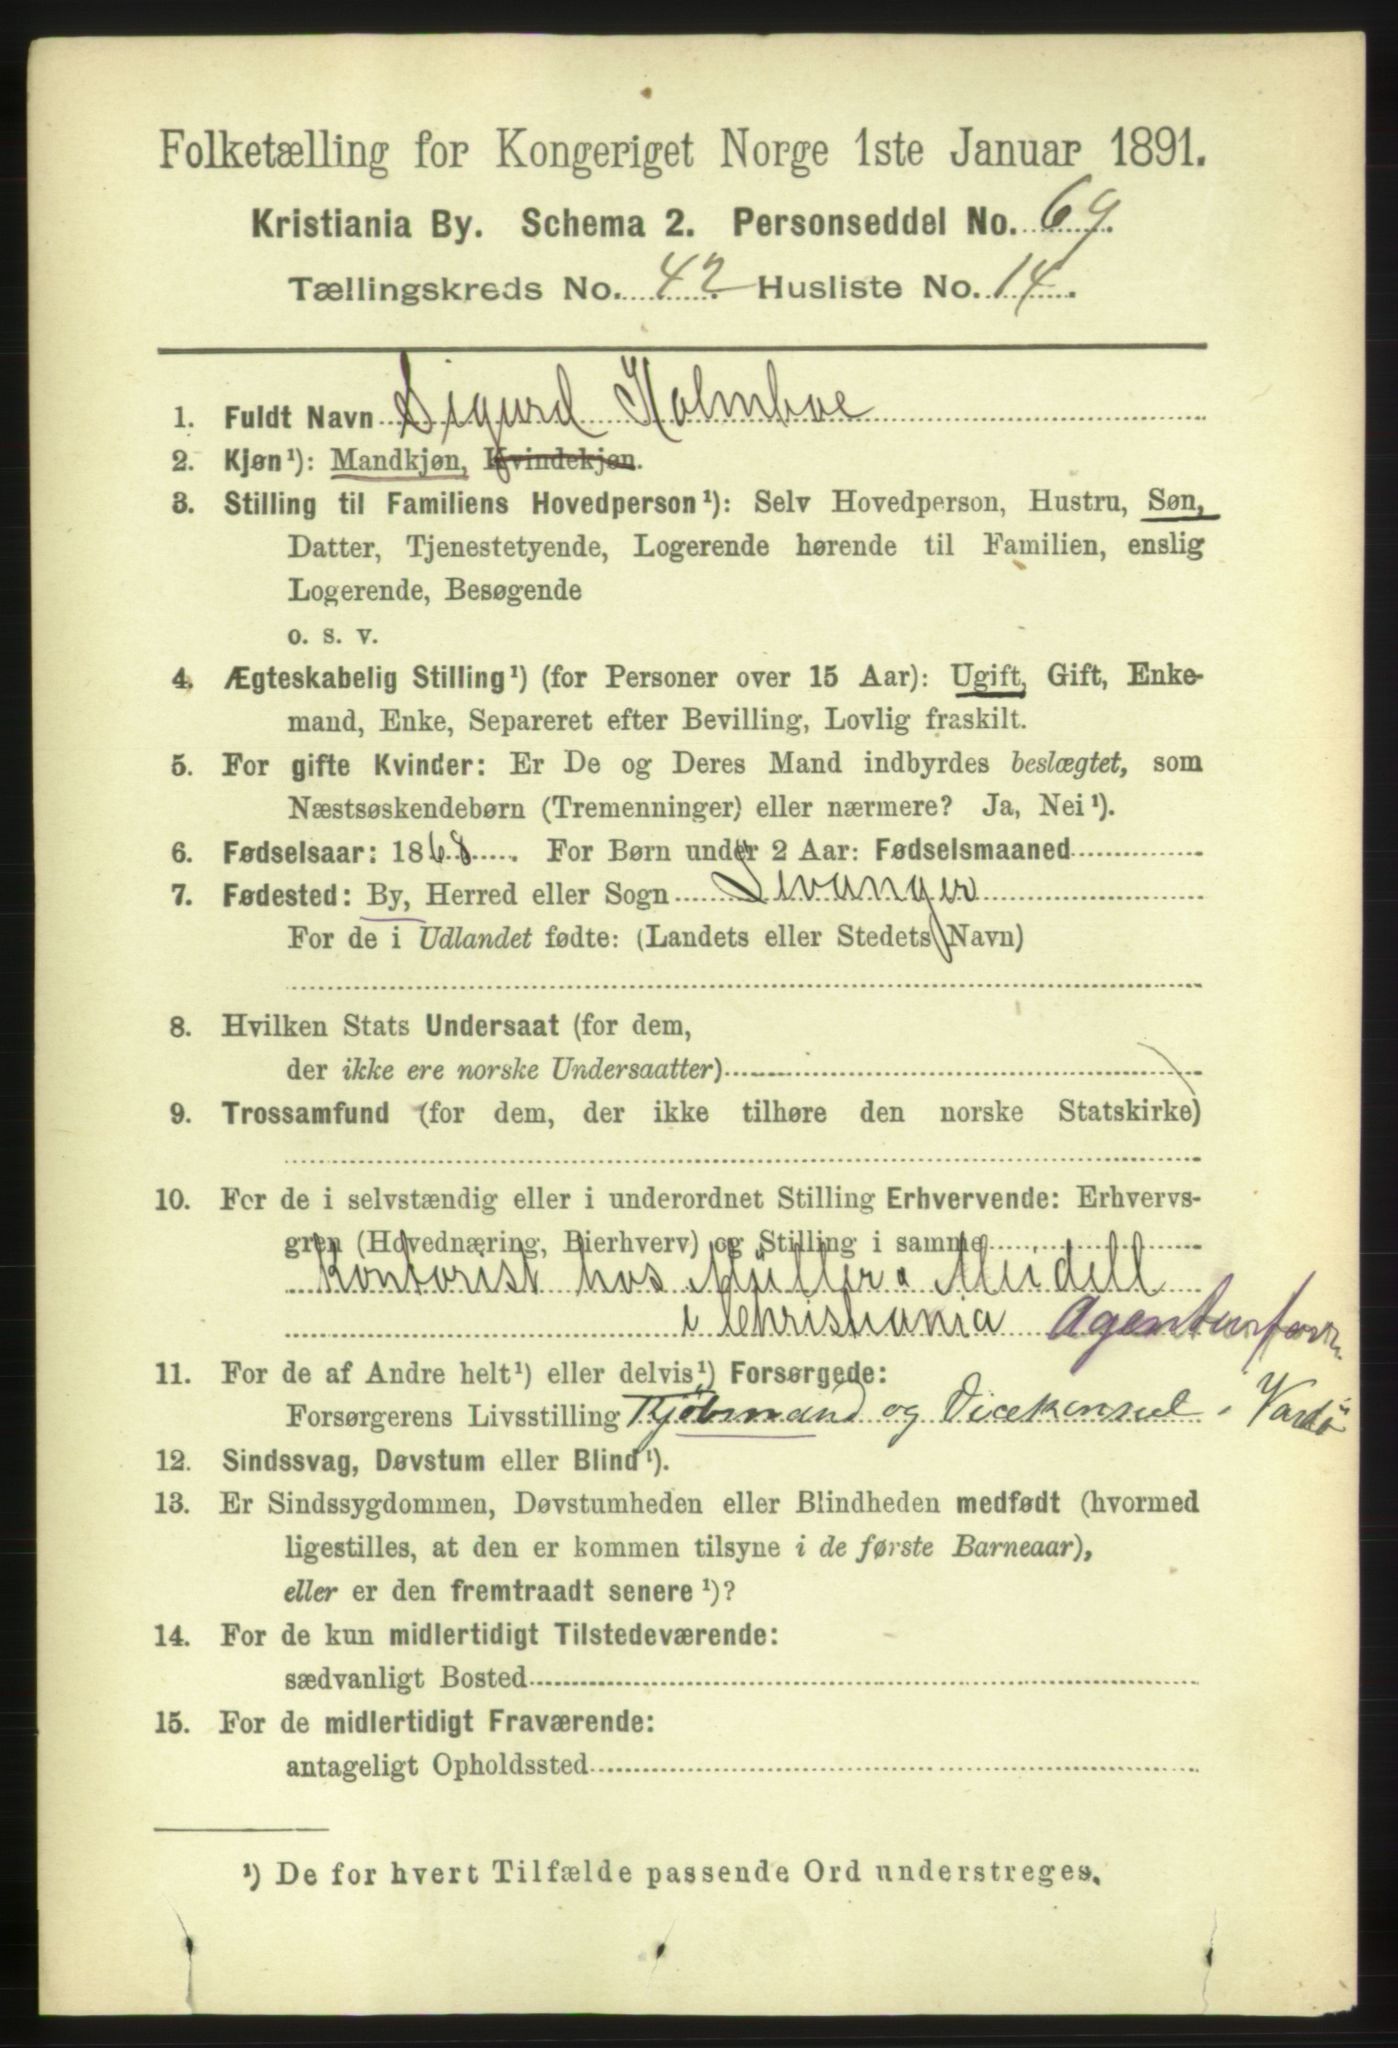 Folketælling for Kongeriget Norge 1ste Januar 1891.
Kristiania By. Schema 2. Personseddel No. 69.
Tællingskreds No. 42 Husliste No. 14.
1. Fuldt Navn Sigurd Holmboe
2. Kjøn¹): Mandkjøn, Kvindekjøn.
3. Stilling til Familiens Hovedperson¹): Selv Hovedperson, Hustru, Søn,
Datter, Tjenestetyende, Logerende hørende til Familien, enslig
Logerende, Besøgende
o. s. v.
4. Ægteskabelig Stilling¹) (for Personer over 15 Aar): Ugift, Gift, Enke-
mand, Enke, Separeret efter Bevilling, Lovlig fraskilt.
5. For gifte Kvinder: Er De og Deres Mand indbyrdes beslægtet, som
Næstsøskendebørn (Tremenninger) eller nærmere? Ja, Nei¹).
6. Fødselsaar: 1868. For Børn under 2 Aar: Fødselsmaaned
7. Fødested: By, Herred eller Sogn Levanger
For de i Udlandet fødte: (Landets eller Stedets Navn)
8. Hvilken Stats Undersaat (for dem,
der ikke ere norske Undersaatter)
9. Trossamfund (for dem, der ikke tilhøre den norske Statskirke)
10. For de i selvstændig eller i underordnet Stilling Erhvervende: Erhvervs-
gren (Hovednæring, Bierhverv) og Stilling i samme
Kontorist hos Müller & Meidell
i Christiania Agenturforr.
11. For de af Andre helt¹) eller delvis¹) Forsørgede:
Forsørgerens Livsstilling Kjøbmand og Vicekonsul i Vardø
12. Sindssvag, Døvstum eller Blind¹).
13. Er Sindssygdommen, Døvstumheden eller Blindheden medfødt (hvormed
ligestilles, at den er kommen tilsyne i de første Barneaar),
eller er den fremtraadt senere¹)?
14. For de kun midlertidigt Tilstedeværende:
sædvanligt Bosted
15. For de midlertidigt Fraværende:
antageligt Opholdssted
¹) De for hvert Tilfælde passende Ord understreges.